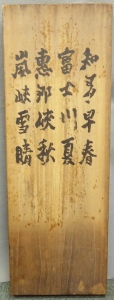 知多早春
富士川夏
恵那峡秋
嵐峡雪晴